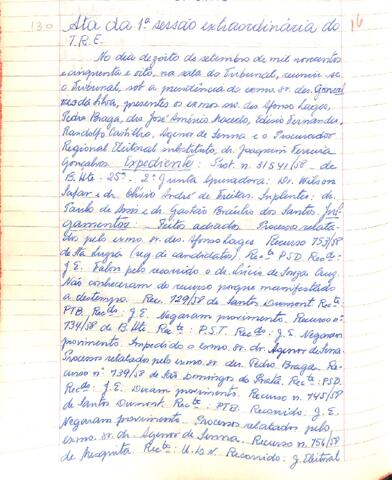 130
16
Ata da 1ª sessão extraordinária do
T.R.E.
No dia dezoito de setembro de mil novecentos
e cinquenta e oito, na sala do Tribunal, reuniu-se
o Tribunal, sob a presidência do exmo. sr. des. Gonçal
ves da Silva, presentes os exmos. srs. des. Afonso Lages,
Pedro Braga, drs. José Américo Macedo, Edésio Fernandes,
Randolfo Castilho, Agenor de Senna e o Procurador
Regional Eleitoral substituto, dr. Joaquim Ferreira
Gonçalves. Expediente: Prot. n. 31541/58 - de
B. Hte - 25ª. - 2ª Junta Apuradora: Dr. Wilson
e dr. André de Freitas. Suplentes: dr.
Paulo de Assis e dr. Gastão Bráulio dos Santos. Jul
gamentos - Feitos adiados. Processo relata
do pelo exmo. sr. des. Afonso Lages. Recurso 753/58
de Sta Luzia (reg. de candidatos) Recte: PSD. Recdo:
J.E. Falou pelo recorrido o dr. de Souza Cruz.
Não conheceram do recurso porque manifestado
a destempo. Rec. 729/58 de Santos Dumont. Recte:
PTB. Recdo: J.E. Negaram provimento. Recurso nº
734/58 de B. Hte. Recte: P.S.T. Recdo: J.E. Negaram
provimento. Impedido o exmo. sr. dr. Agenor de Senna.
Processos relatados pelo exmo. sr. des. Pedro Braga. Re-
curso nº 739/58 de São Domingos do Prata. Recte: PSD.
Recdo: J.E. Deram provimento. Recurso n. 745/58
de Santos Dumont. Recte: PTB. Recorrido: J.E.
Negaram provimento. Processos relatados pelo
exmo. sr. dr. Agenor de Senna. Recurso n. 756/58
de Mesquita. Recte: U.D.N. Recorrido: J. Eleitoral